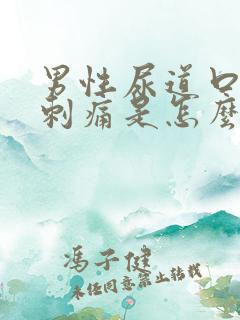 男性尿道口
刺痛是怎麼
馮子健
未经同意禁止转载